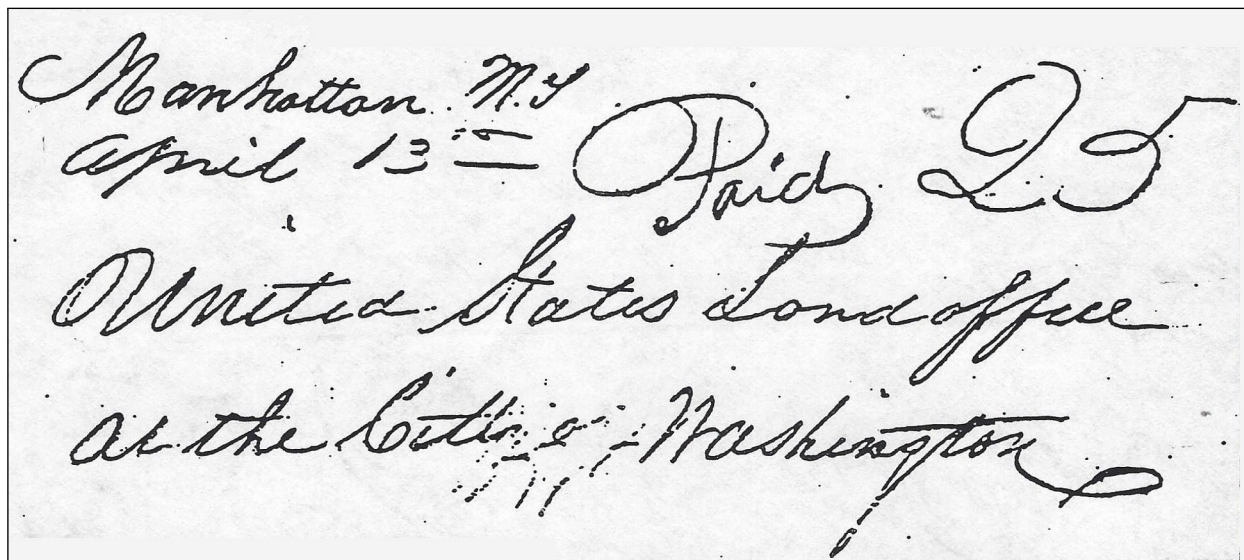 Manhattan M.T
April 13th Paid 25
United States Land office
at the City of Washington